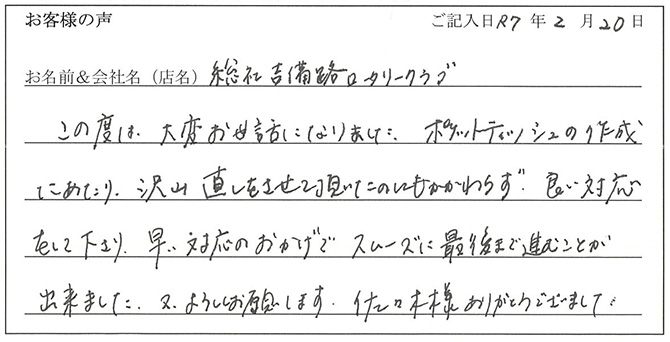 お客様の声 ご記入日 R7 年 2 月 20 日
お名前&会社名（店名） 総社吉備路ロータリークラブ
この度は、大変お世話になりました。ポケットティッシュの作成
にあたり、沢山直しをさせて頂いたのにもかかわらず、良い対応
をして下さり、早い対応のおかげでスムーズに最後まで進むことが
出来ました。又、よろしくお願いします。佐々木様ありがとうございました。